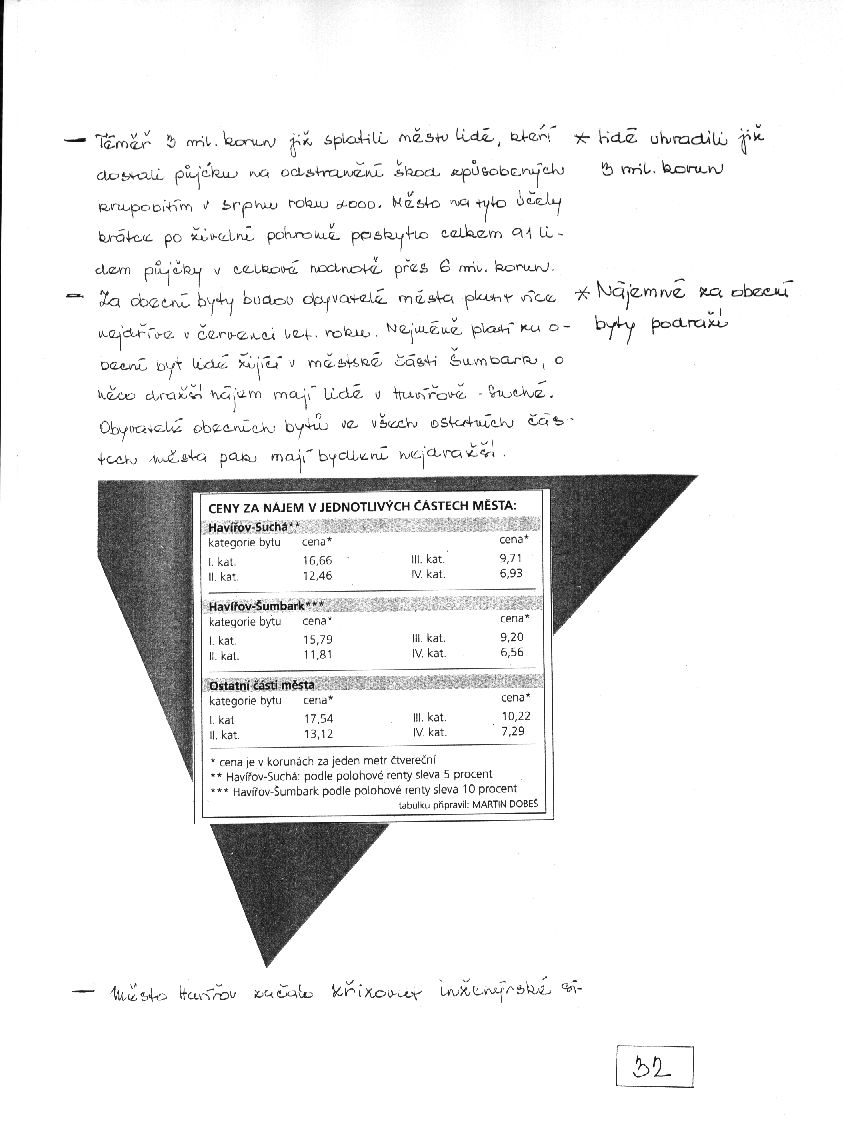 — Téměř 3 mil. korun již splatili městu lidé, kteří
dostali půjčku na odstranění škod způsobených
krupobitím v srpnu roku 2000. Město na tyto účely
krátce po živelné pohromě poskytlo celkem 91 li-
dem půjčky v celkové hodnotě přes 6 mil. korun.
* Lidé uhradili již
3 mil. korun
– Za obecní byty budou obyvatelé města platit více
nejdříve v červenci let. roku. Nejméně platí za o-
becní byt lidé žijící v městské části Šumbark, o
něco dražší nájem mají lidé v Havířově - Suché.
Obyvatelé obecních bytů ve všech ostatních čás-
tech města pak mají bydlení nejdražší.
* Nájemné za obecní
byty podraží
CENY ZA NÁJEM V JEDNOTLIVÝCH ČÁSTECH MĚSTA:
Havířov-Suchá**
kategorie bytu cena* cena*
I. kat. 16,66 III. kat. 9,71
II. kat. 12,46 IV. kat. 6,93
Havířov-Šumbark***
kategorie bytu cena* cena*
I. kat. 15,79 III. kat. 9,20
II. kat. 11,81 IV. kat. 6,56
Ostatní části města
kategorie bytu cena* cena*
I. kat 17,54 III. kat. 10,22
II. kat. 13,12 IV. kat. 7,29
* cena je v korunách za jeden metr čtvereční
** Havířov-Suchá: podle polohové renty sleva 5 procent
*** Havířov-Šumbark podle polohové renty sleva 10 procent
tabulku připravil: MARTIN DOBEŠ
— Město Havířov začalo křižovat inženýrské sí-
32